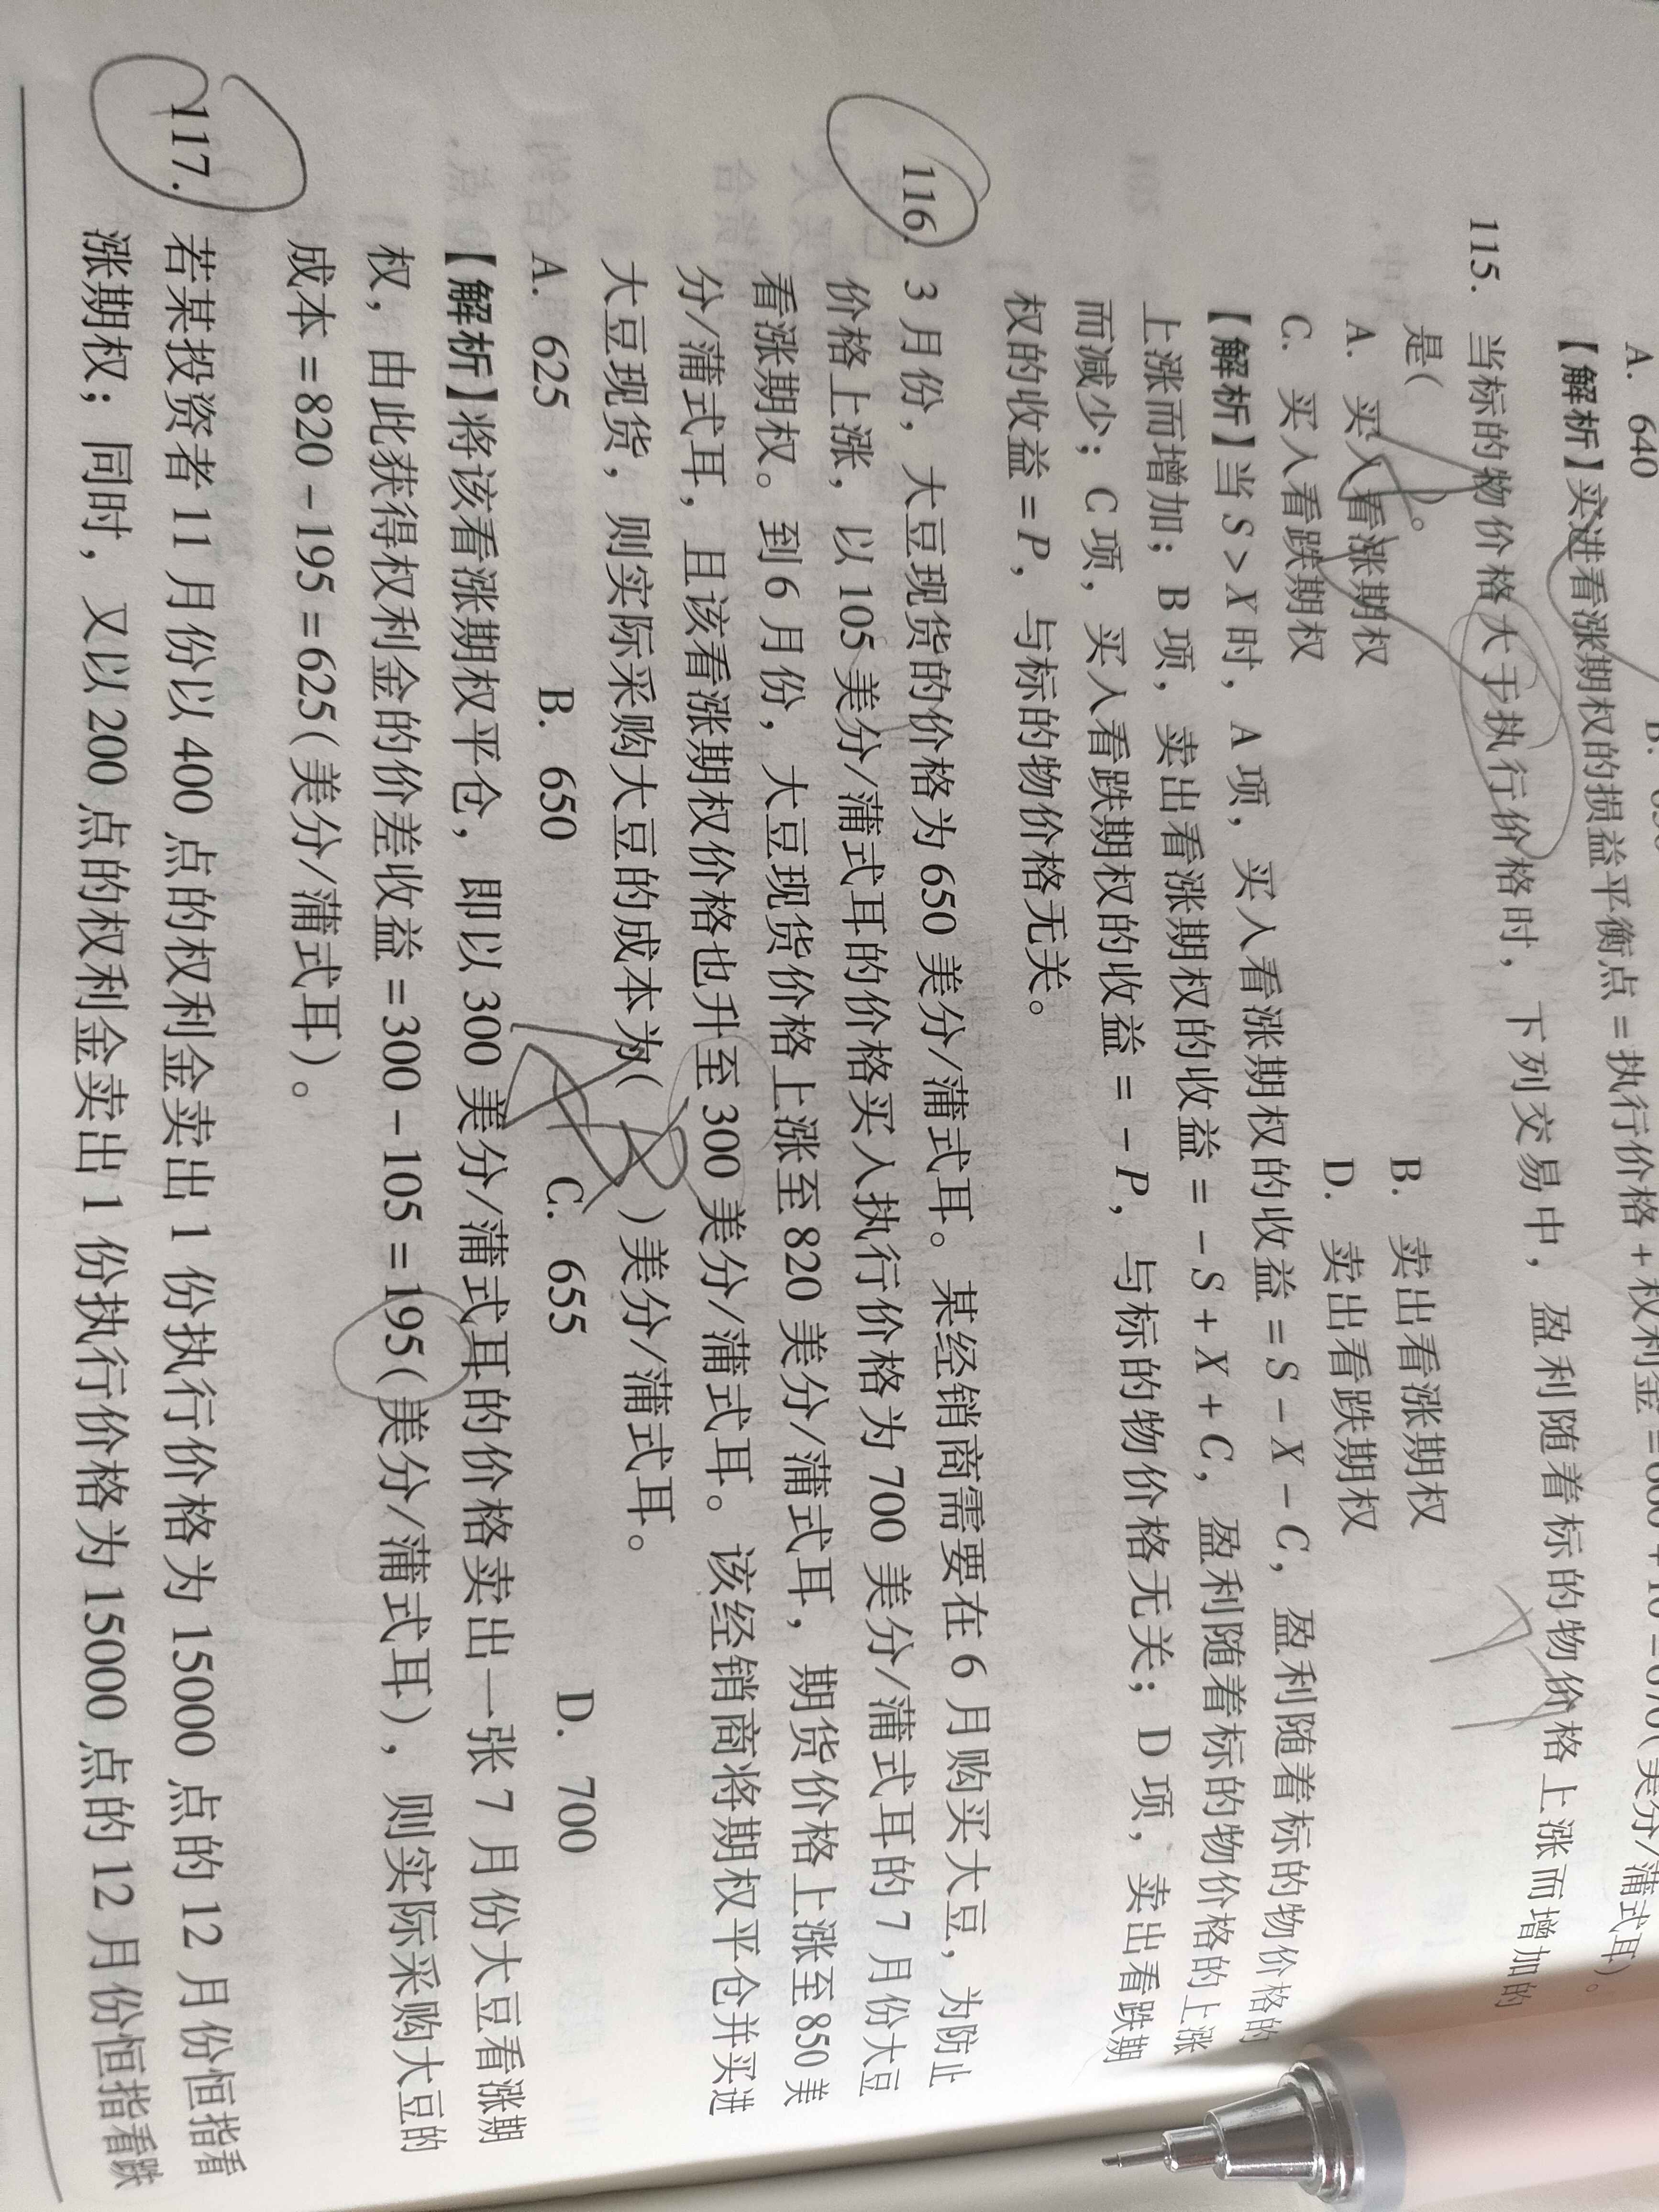 A. 640
【解析】买进看涨期权的损益平衡点=执行价格+权利金=
115. 当标的物价格大于执行价格时，下列交易中，盈利随着标的物价格上涨而增加的
是(
A. 买入看涨期权 B. 卖出看涨期权
C. 买入看跌期权 D. 卖出看跌期权
【解析】当S>X时，A项，买入看涨期权的收益=S-X-C，盈利随着标的物价格的
上涨而增加；B项，卖出看涨期权的收益=-S+X+C，盈利随着标的物价格的上涨
而减少；C项，买入看跌期权的收益=-P，与标的物价格无关；D项，卖出看跌期
权的收益=P，与标的物价格无关。
116. 3月份，大豆现货的价格为650美分/蒲式耳。某经销商需要在6月购买大豆，为防止
价格上涨，以105美分/蒲式耳的价格买入执行价格为700美分/蒲式耳的7月份大豆
看涨期权。到6月份，大豆现货价格上涨至820美分/蒲式耳，期货价格上涨至850美
分/蒲式耳，且该看涨期权价格也升至300美分/蒲式耳。该经销商将期权平仓并买进
大豆现货，则实际采购大豆的成本为( )美分/蒲式耳。
A. 625 B. 650 C. 655 D. 700
【解析】将该看涨期权平仓，即以300美分/蒲式耳的价格卖出一张7月份大豆看涨期
权，由此获得权利金的价差收益=300-105=195(美分/蒲式耳)，则实际采购大豆的
成本=820-195=625(美分/蒲式耳)。
117. 若某投资者11月份以400点的权利金卖出1份执行价格为15000点的12月份恒指看
涨期权；同时，又以200点的权利金卖出1份执行价格为15000点的12月份恒指看跌